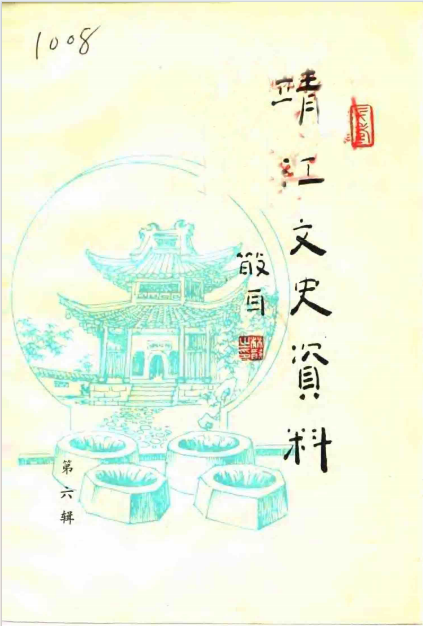 1008
靖江文史資料
散耳
第六辑